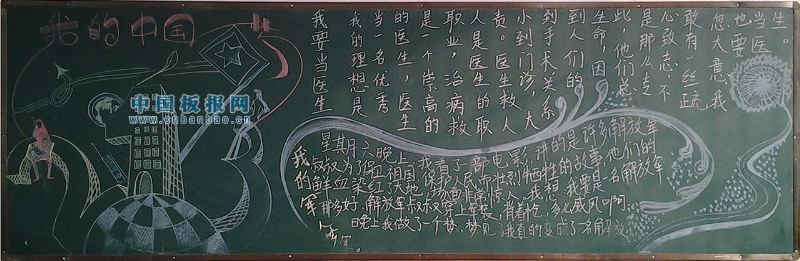 我的中国梦
中国板报网
www.cnbanbao.cn
我要当医生
我的理想是
当一名优秀
的医生，医生
是一个崇高的
职业，治病救
人是医生的取
责。医生救人
小到门诊，大
到手术关系
到人们的
生命，因
此，他们总
是那么专
心致志，不
敢有一丝疏
忽大意，我
也要
当医
生。
我的军
星期六晚上，我看了一部电影，讲的是许多解放军
叔叔为了保卫祖国，保护人民而壮烈牺牲的故事，他们的
鲜血染红了大地，场面惊人，我想，我要是一名解放军
那多好，解放军叔叔穿上军装，肩着枪，多么威风啊，
晚上我做了一个梦，梦见我真的变成了一名解放
军。